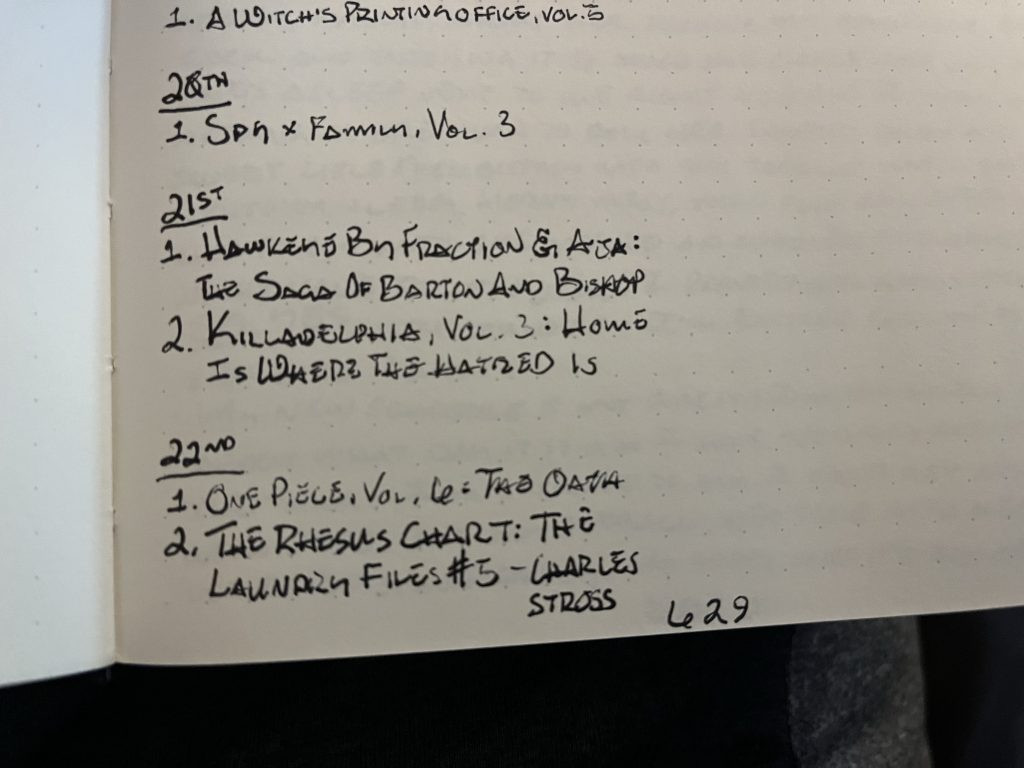 1. A WITCH'S PRINTING OFFICE, VOL. 5
20TH
1. SPY x FAMILY, VOL. 3
21ST
1. HAWKEYE BY FRACTION & AJA:
THE SAGA OF BARTON AND BISHOP
2. KILLADELPHIA, VOL. 3: HOME
IS WHERE THE HATRED IS
22ND
1. ONE PIECE, VOL. 6: THE OATH
2. THE RHESUS CHART: THE
LAUNDRY FILES #5 - CHARLES
STROSS
629